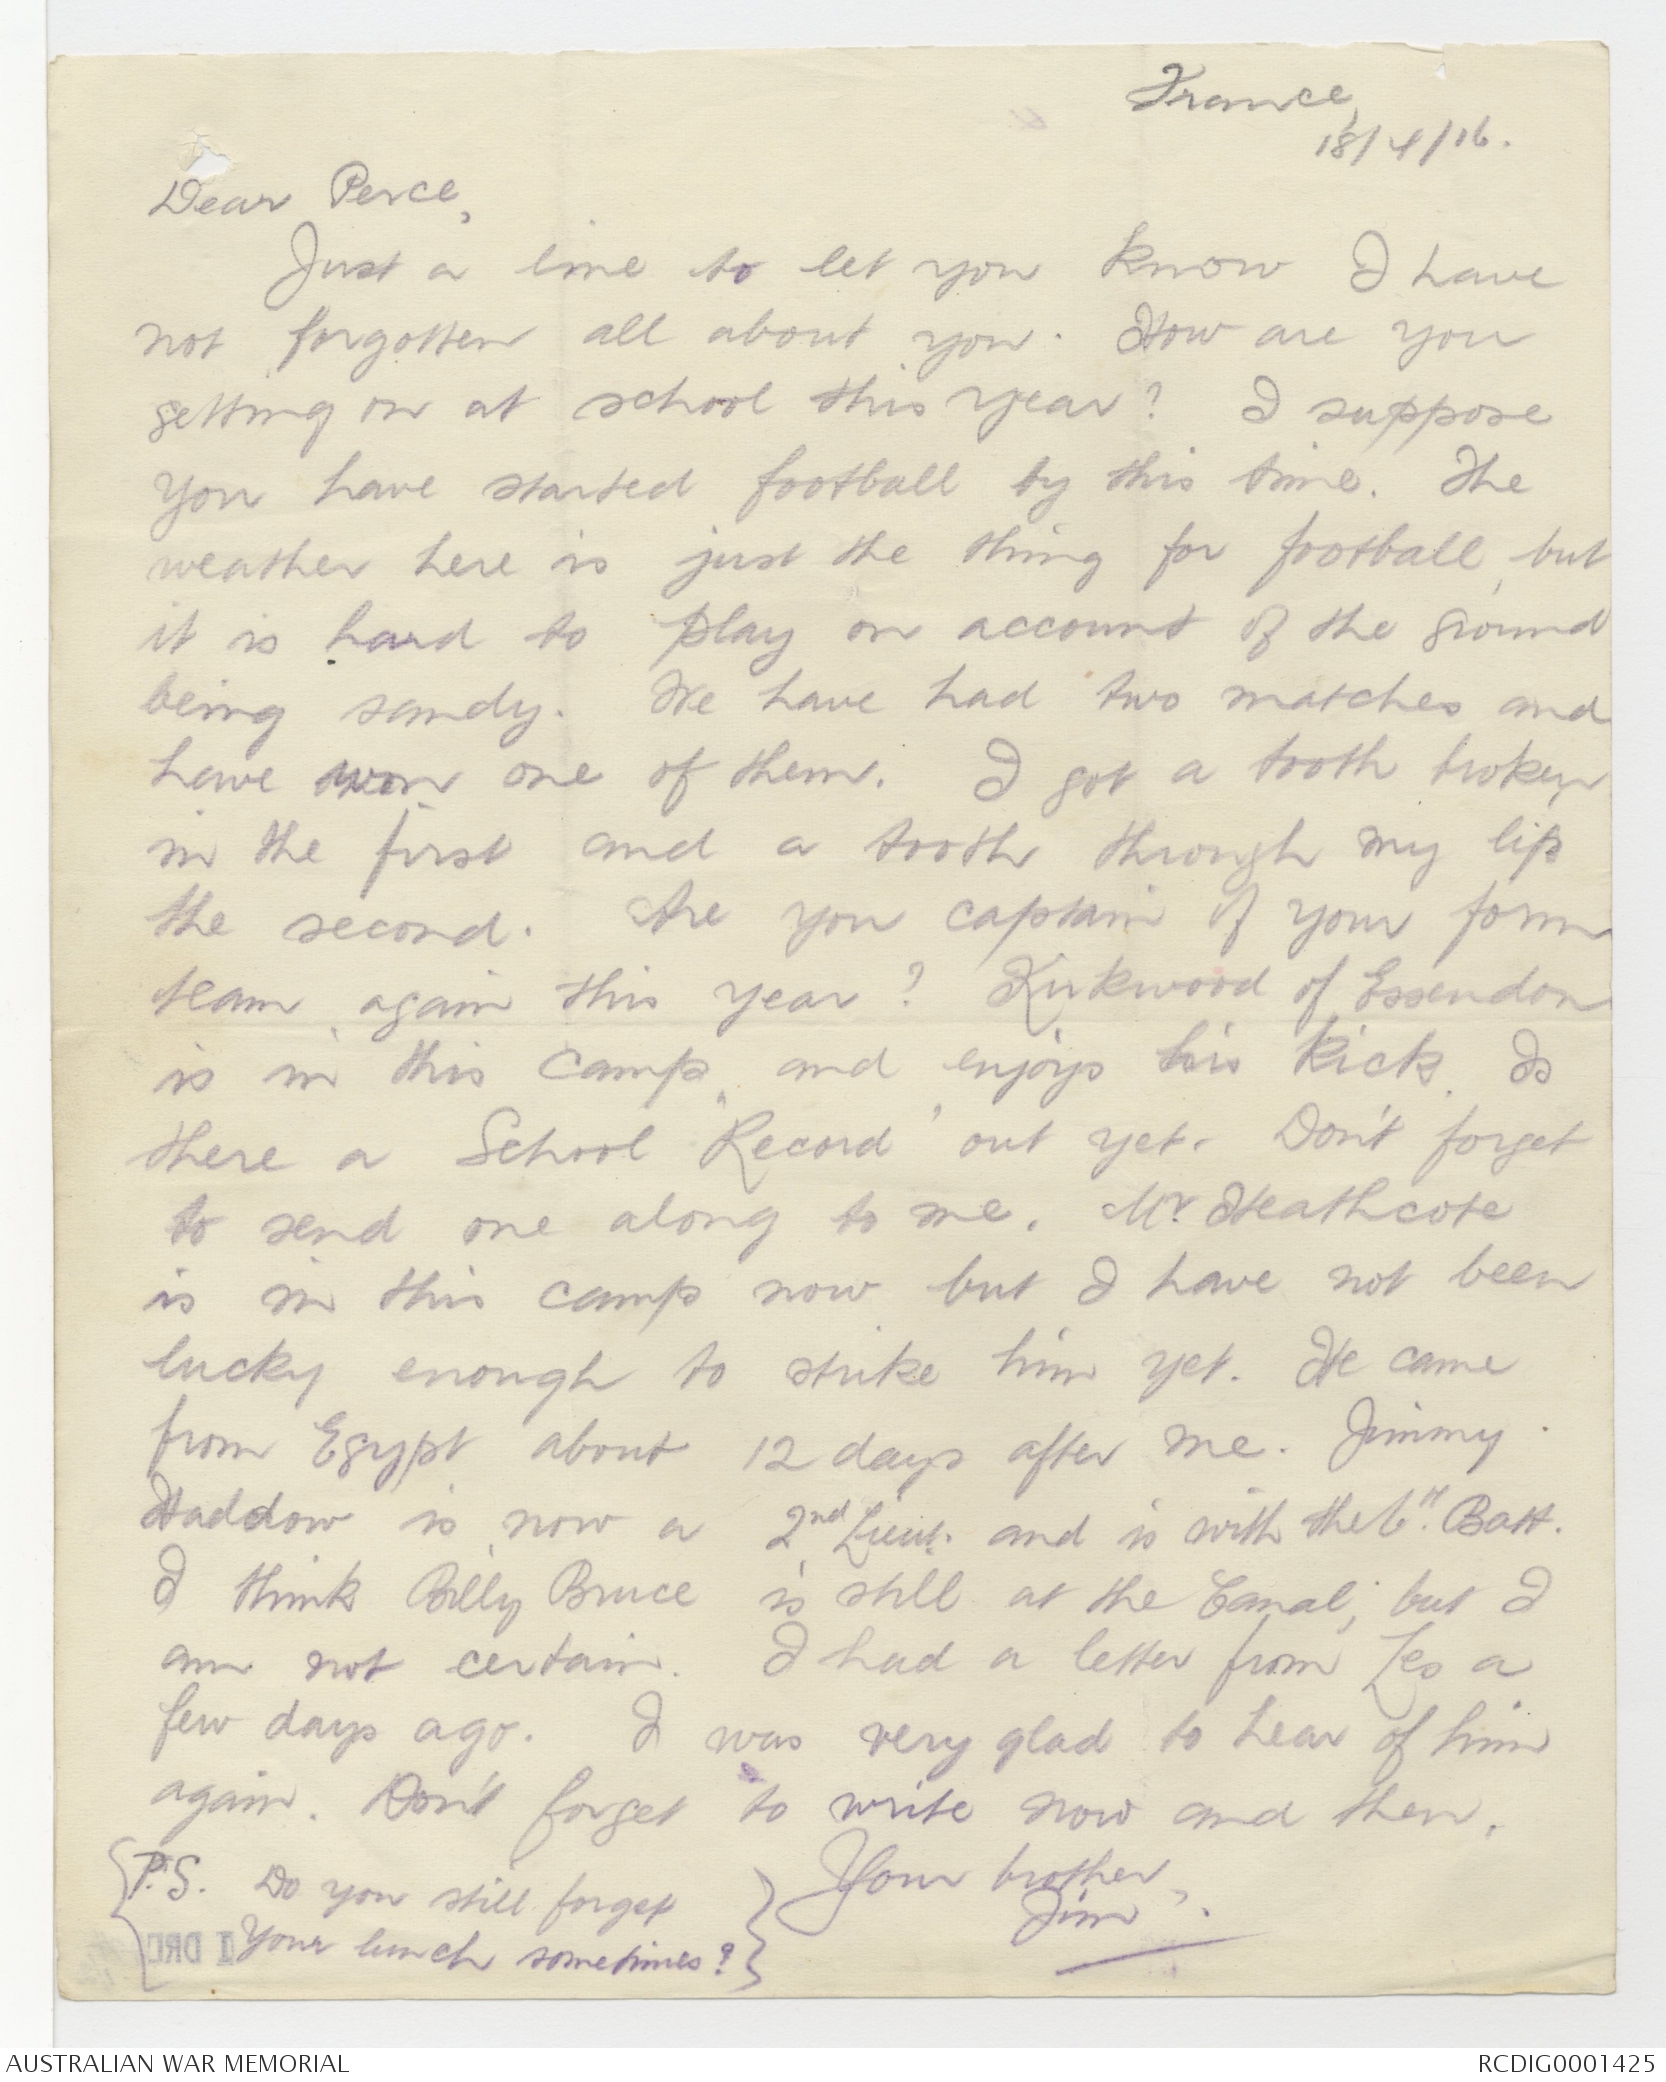 France,
18/4/16.
Dear Perce,
Just a line to let you know I have
not forgotten all about you. How are you
getting on at school this year? I suppose
you have started football by this time. The
weather here is just the thing for football, but
it is hard to play on account of the ground
being sandy. We have had two matches and
have won one of them. I got a tooth broken
in the first and a tooth through my lip
the second. Are you captain of your form
team again this year? Kirkwood of Essendon
is in this camp, and enjoys his kick. Is
there a School "Record" out yet. Don't forget
to send one along to me. Mr Heathcote
is in this camp now but I have not been
lucky enough to strike him yet. He came
from Egypt about 12 days after me. Jimmy
Haddow is now a 2nd Lieut. and is with the 6th. Batt.
I think Billy Bruce is still at the Canal, but I
am not certain. I had a letter from Les a
few days ago. I was very glad to hear of him
again. Don't forget to write now and then.
Your brother,
Jim.
P.S. Do you still forget
your lunch sometimes?
1 DRL
AUSTRALIAN WAR MEMORIAL
RCDIG0001425